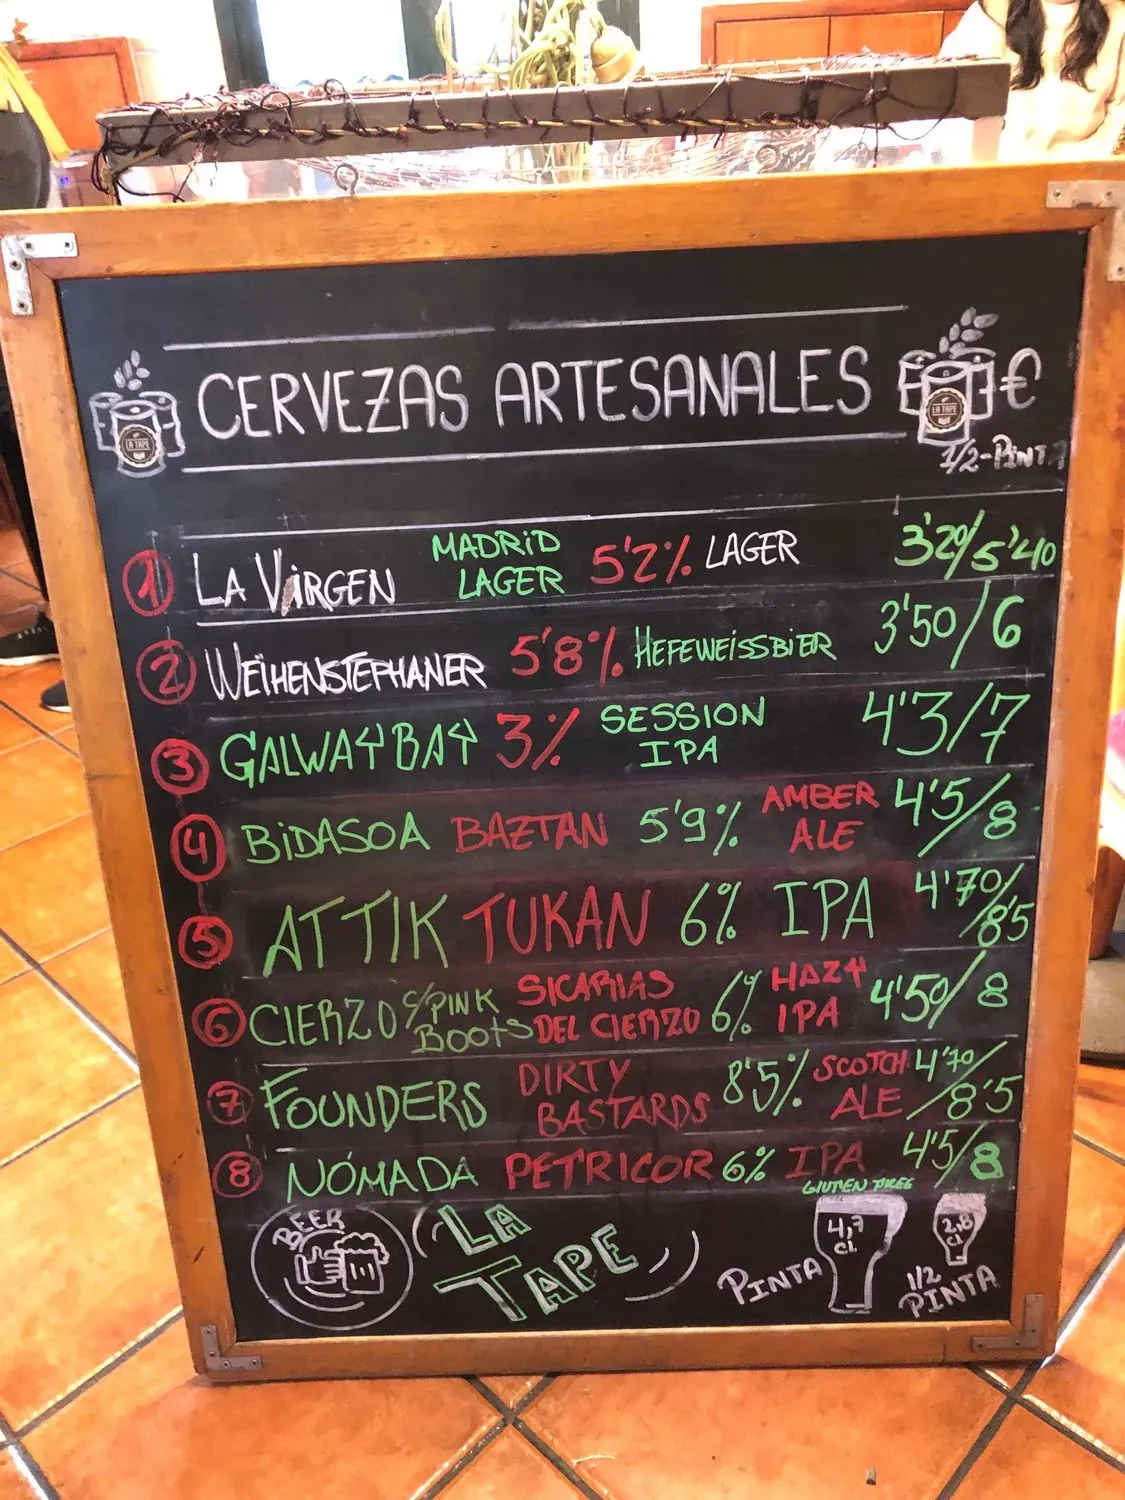 CERVEZAS ARTESANALES €
LA TAPE
LA TAPE
1/2-PINTA
1 LA VIRGEN MADRID LAGER 5'2% LAGER 3'20/5'40
2 WEIHENSTEPHANER 5'8% HEFEWEISSBIER 3'50/6
3 GALWAY BAY 3% SESSION IPA 4'3/7
4 BIDASOA BAZTAN 5'9% AMBER ALE 4'5/8
5 ATTIK TUKAN 6% IPA 4'70/8'5
6 CIERZO c/PINK BOOTS SICARIAS DEL CIERZO 6% HAZY IPA 4'50/8
7 FOUNDERS DIRTY BASTARDS 8'5% SCOTCH ALE 4'70/8'5
8 NÓMADA PETRICOR 6% IPA GLUTEN FREE 4'5/8
BEER
LA TAPE
PINTA 4,7 CL
2,8 CL 1/2 PINTA